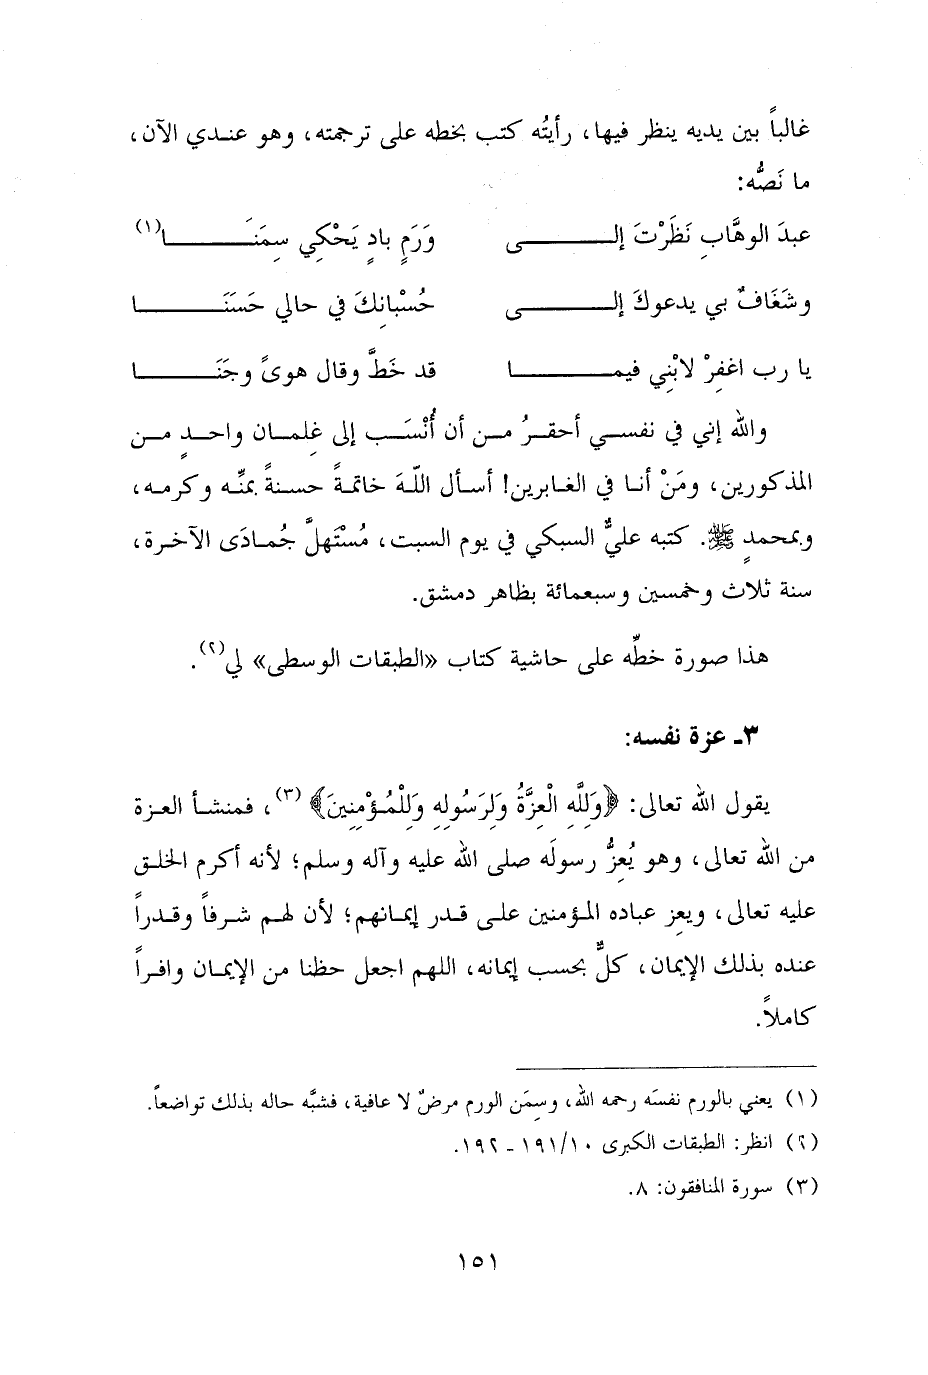 غالباً بين يديه ينظر فيها، رأيتُه كتب بخطه على ترجمته، وهو عندي الآن،
ما نَصُّه:
عبدَ الوهَّابِ نَظَرْتَ إلى وَرَمٍ بادٍ يَحْكِي سِمَنَا(١)
وشَغَافٌ بي يدعوكَ إلى حُسْبانِكَ في حالي حَسَنَا
يا رب اغفِرْ لابْنِي فيما قد خَطَّ وقال هوىً وجَنَا
والله إني في نفسي أحقرُ من أن أُنْسَب إلى غِلمان واحدٍ من
المذكورين، ومَنْ أنا في الغابرين! أسأل اللّهَ خاتمةً حسنةً بمنِّه وكرمه،
وبمحمدٍ ﷺ. كتبه عليٌّ السبكي في يوم السبت، مُسْتَهلَّ جُمادَى الآخرة،
سنة ثلاث وخمسين وسبعمائة بظاهر دمشق.
هذا صورة خطِّه على حاشية كتاب «الطبقات الوسطى» لي(٢).
٣ـ عزة نفسه:
يقول الله تعالى: ﴿وَلِلَّهِ الْعِزَّةُ وَلِرَسُولِهِ وَلِلْمُؤْمِنِينَ﴾(٣)، فمنشأ العزة
من الله تعالى، وهو يُعِزُّ رسولَه صلى الله عليه وآله وسلم؛ لأنه أكرم الخلق
عليه تعالى، ويعِز عباده المؤمنين على قدر إيمانهم؛ لأن لهم شرفاً وقدراً
عنده بذلك الإيمان، كلٌّ بحسب إيمانه، اللهم اجعل حظنا من الإيمان وافراً
كاملاً.
(١) يعني بالورم نفسَه رحمه الله، وسِمَن الورم مرضٌ لا عافية، فشبَّه حاله بذلك تواضعاً.
(٢) انظر: الطبقات الكبرى ١٩١/١٠ ـ ١٩٢.
(٣) سورة المنافقون: ٨.
١٥١